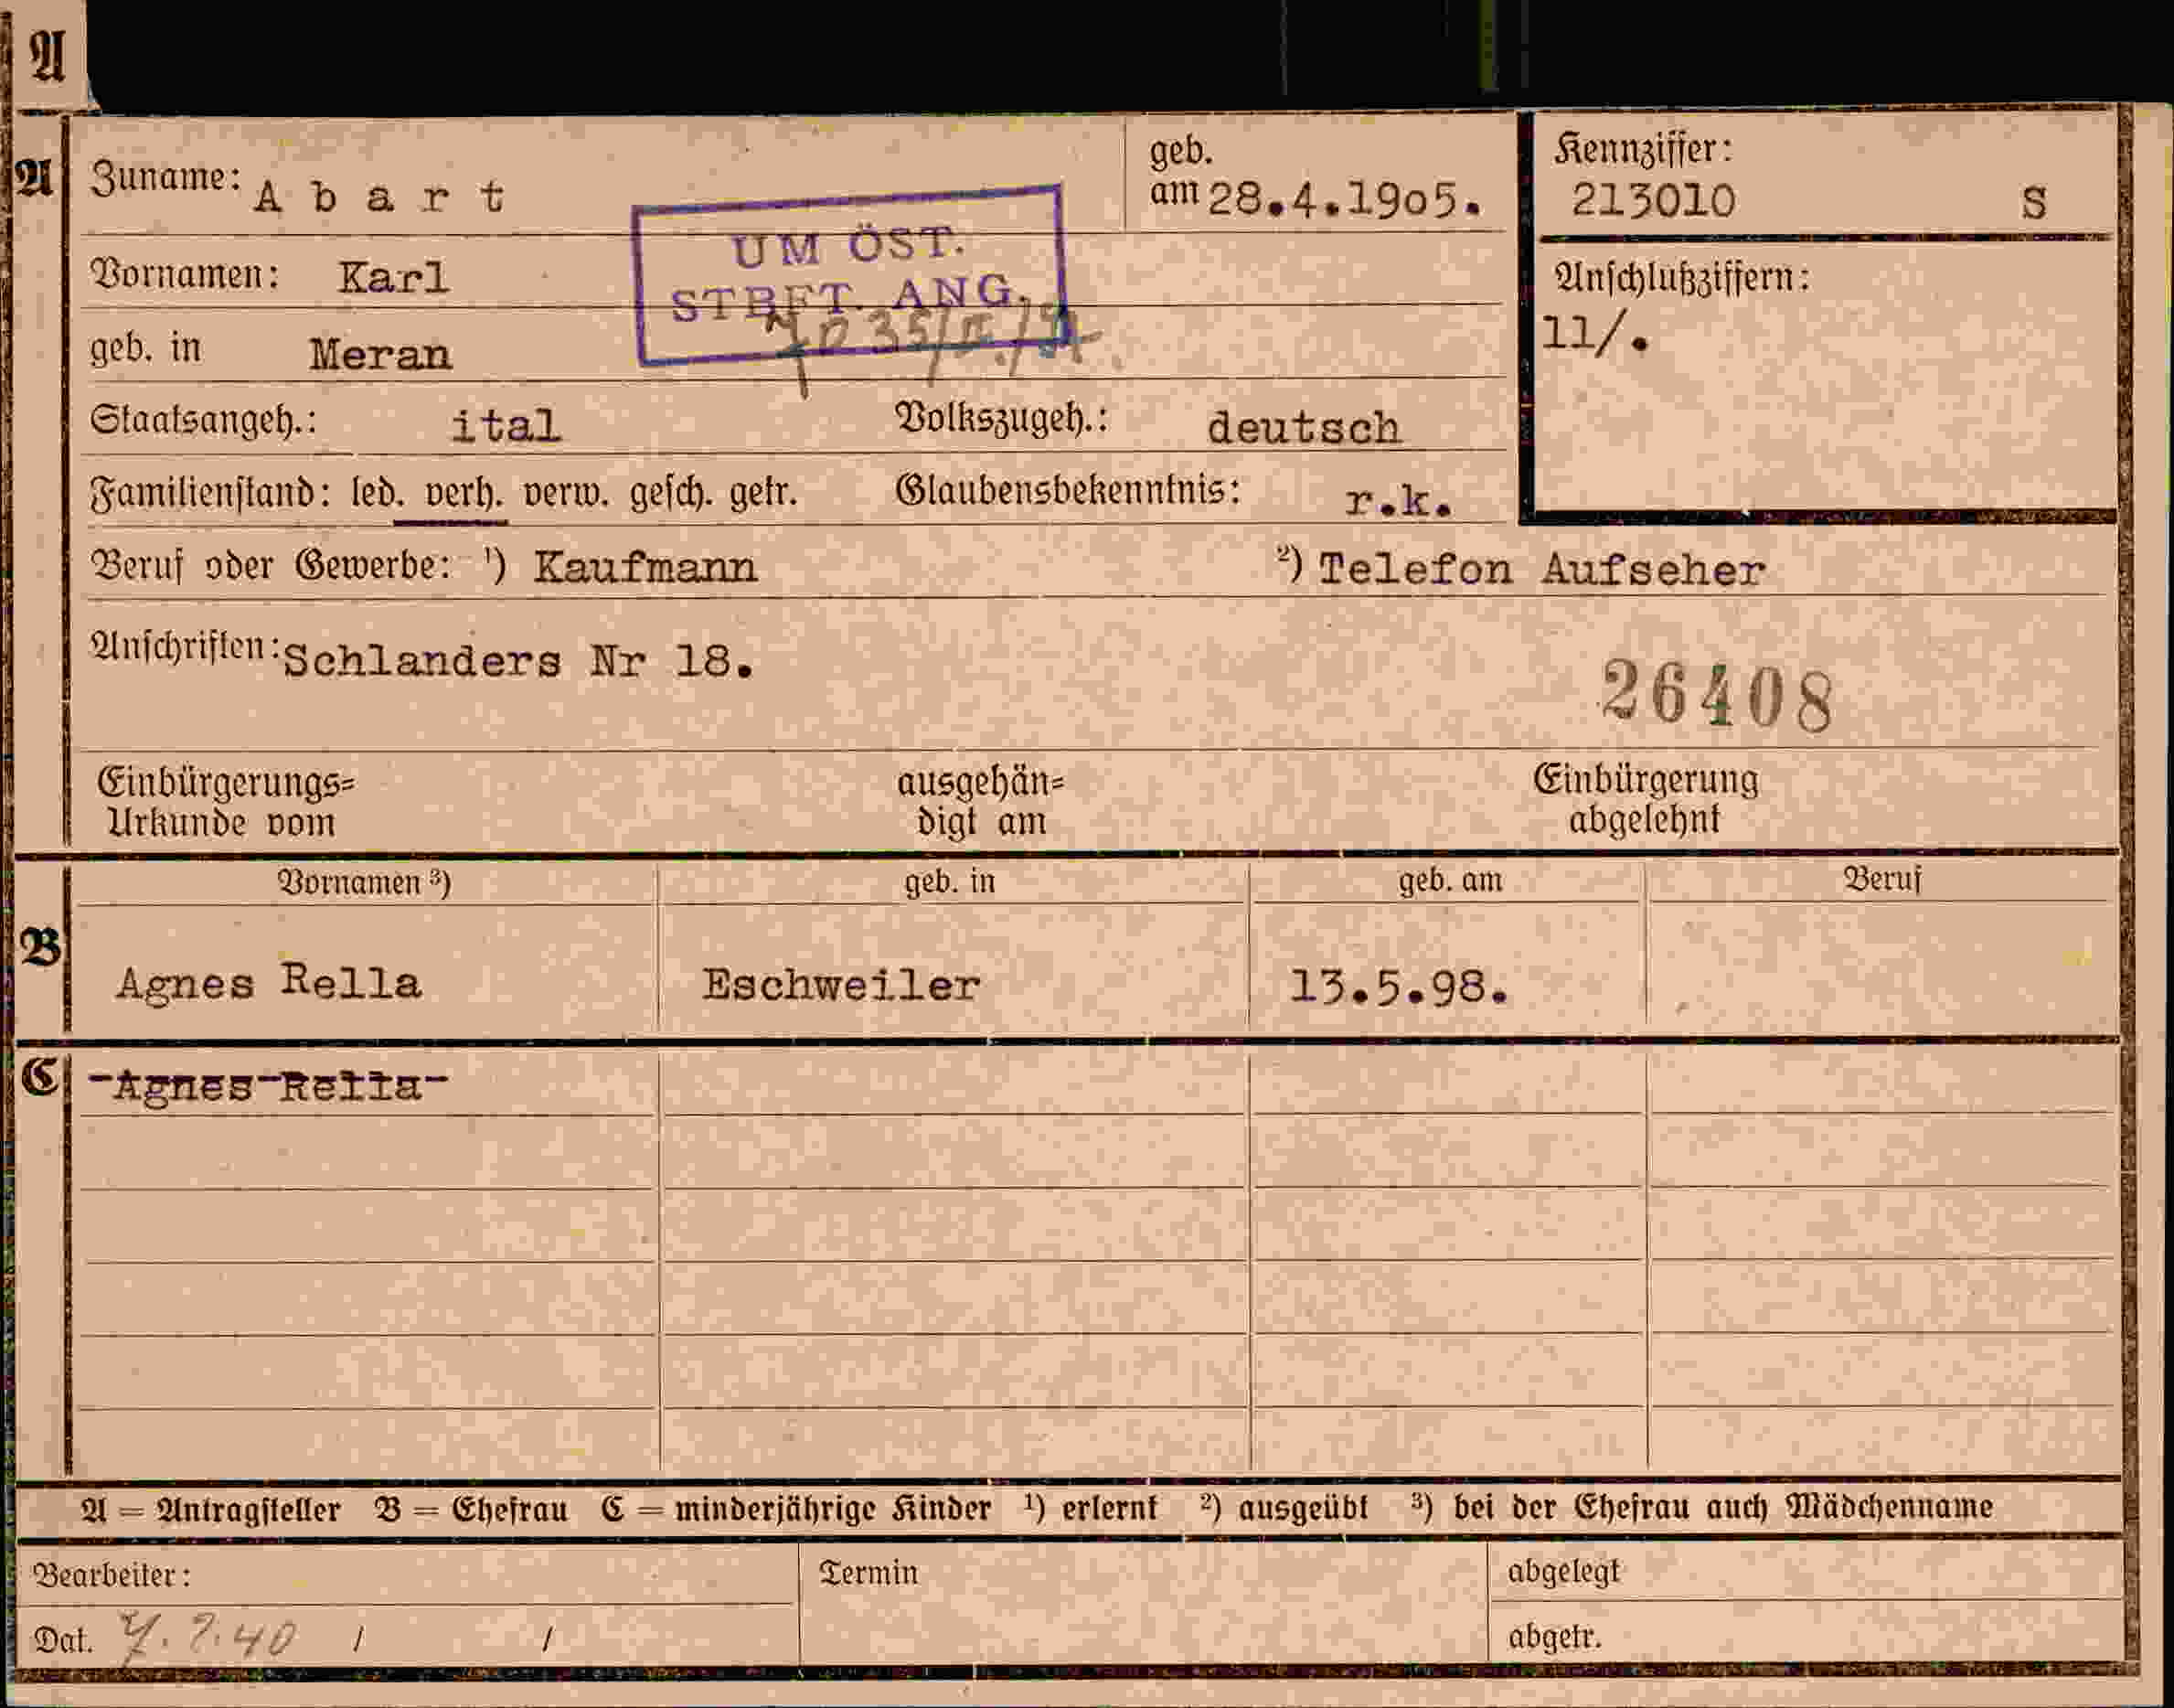 A
A
Zuname: Abart
geb. am 28.4.19o5.
Kennziffer:
213010 S
UM ÖST.
STBFT. ANG.
Vornamen: Karl
Anschlußziffern:
11/.
geb. in Meran
Staatsangeh.: ital Volkszugeh.: deutsch
Familienstand: led. verh. verw. gesch. getr. Glaubensbekenntnis: r.k.
Beruf oder Gewerbe: ¹) Kaufmann ²) Telefon Aufseher
Anschriften: Schlanders Nr 18.
26408
Einbürgerungs= ausgehän= Einbürgerung
Urkunde vom digt am abgelehnt
Vornamen ³) geb. in geb. am Beruf
B
Agnes Rella Eschweiler 13.5.98.
C -Agnes-Rella-
A = Antragsteller B = Ehefrau C = minderjährige Kinder ¹) erlernt ²) ausgeübt ³) bei der Ehefrau auch Mädchenname
Bearbeiter: Termin abgelegt
Dat. / / abgetr.